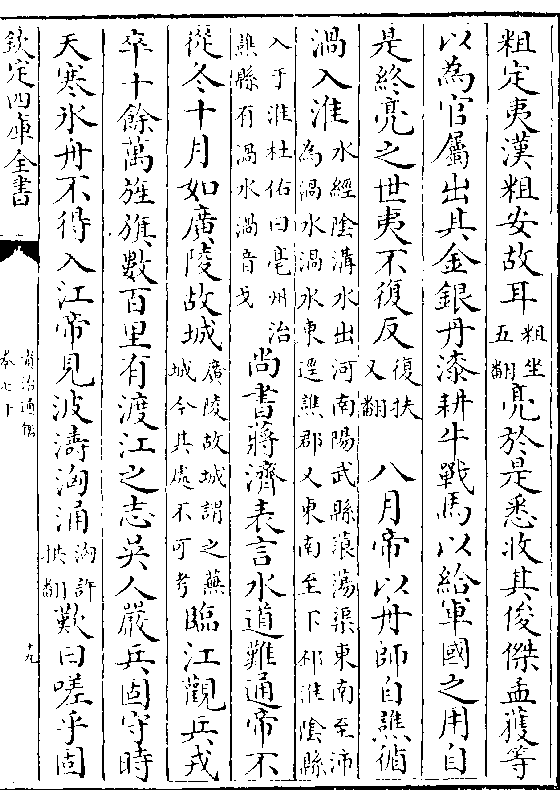 粗定夷漢粗安故耳粗坐五翻亮於是悉收其俊傑孟獲等
以為官屬出其金銀丹漆耕牛戰馬以給軍國之用自
是終亮之世夷不復反復扶又翻 八月帝以舟師自譙循
渦入淮水經陰溝水出河南陽武縣蒗蕩渠東南至沛為渦水渦水東逕譙郡又東南至下邳淮陰縣
入于淮杜佑曰亳州治譙縣有渦水渦音戈尚書蔣濟表言水道難通帝不
從冬十月如廣陵故城廣陵故城謂之蕪城今其處不可考臨江觀兵戎
卒十餘萬旌旗數百里有渡江之志吳人嚴兵固守時
天寒氷舟不得入江帝見波濤洶涌洶許拱翻歎曰嗟乎固
欽定四庫全書
資治通鑑
卷七十
十九